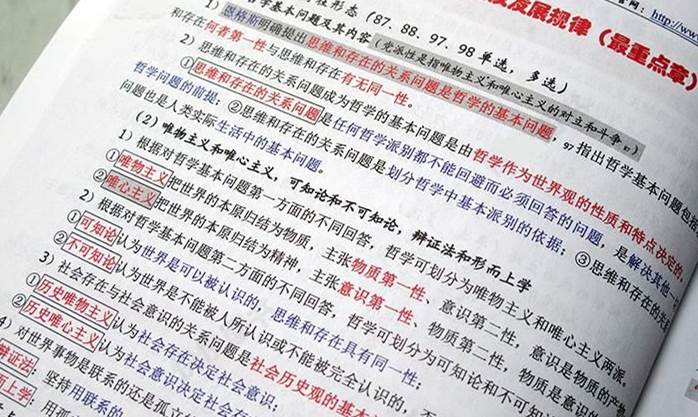 发展规律（最重点章）
http://www
性形态（87、88、97、98单选，多选）
学基本问题及其内容（党派性是指唯物主义和唯心主义的对立和斗争。）
1）恩格斯明确提出思维和存在的关系问题是哲学的基本问题，97指出哲学基本问题包括
和存在何者第一性与思维和存在有无同一性。
2）思维和存在的关系问题成为哲学的基本问题是由哲学作为世界观的性质和特点决定的。
①思维和存在的关系问题是任何哲学派别都不能回避而必须回答的问题，是解决其他一
哲学问题的前提；②思维和存在的关系问题是划分哲学中基本派别的依据；③思维和存在的关
问题也是人类实际生活中的基本问题。
（2）唯物主义和唯心主义，可知论和不可知论，辩证法和形而上学
1）根据对哲学基本问题第一方面的不同回答，哲学可划分为唯物主义和唯心主义两派。
①唯物主义把世界的本原归结为物质，主张物质第一性、意识第二性，意识是物质的产物
②唯心主义把世界的本原归结为精神，主张意识第一性、物质第二性，物质是意识的
2）根据对哲学基本问题第二方面的不同回答，哲学可划分为可知论和不可知
①可知论认为世界是可以被认识的，思维和存在具有同一性；
②不可知论认为世界是不能被人所认识或不能被完全认识的，否
3）社会存在与社会意识的关系问题是社会历史观的基本
①历史唯物主义认为社会存在决定社会意识；
②历史唯心主义认为社会意识决定社会存
4）对世界事物是联系的还是孤立
辩证法：坚持用联系的
而上学：用孤